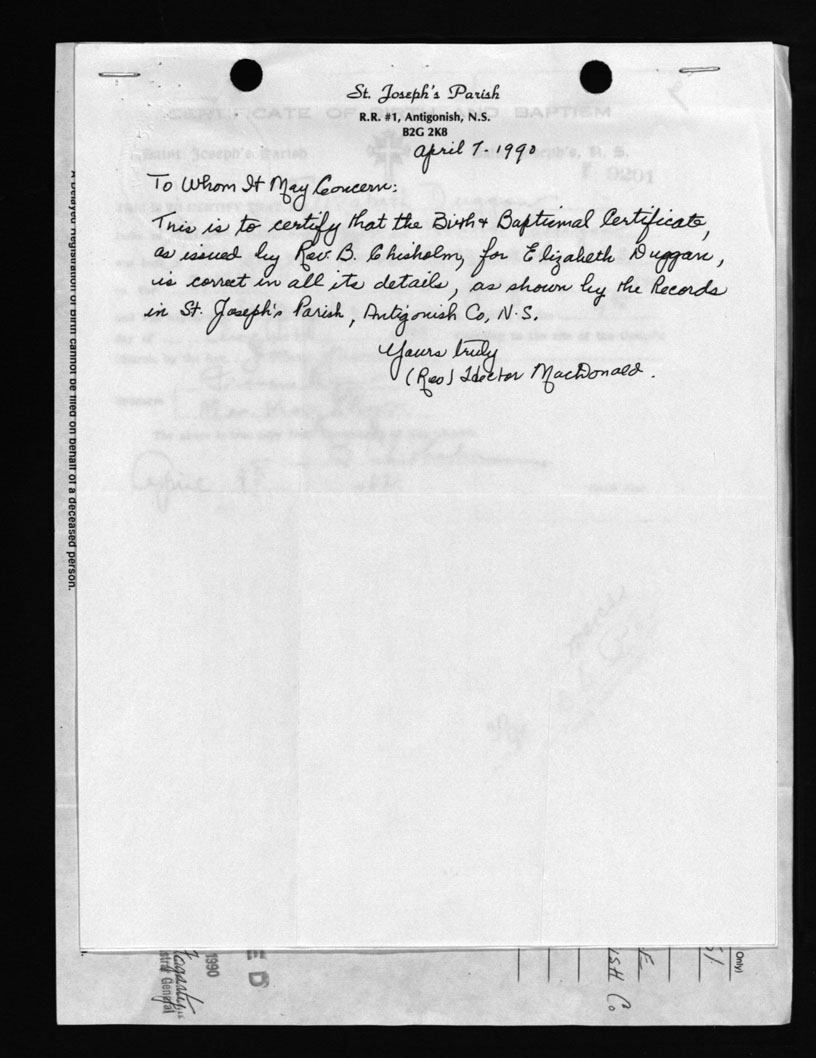 St. Joseph's Parish
R.R. #1, Antigonish, N.S.
B2G 2K8
April 7-1990
To Whom It May Concern:
This is to certify that the Birth & Baptismal Certificate,
as issued by Rev. B. Chisholm, for Elizabeth Duggan,
is correct in all its details, as shown by the Records
in St. Joseph's Parish, Antigonish Co, N.S.
Yours truly
(Rev) Hector MacDonald.
A Delayed Registration of Birth cannot be filed on behalf of a deceased person.
CERTIFICATE OF BIRTH AND BAPTISM
Saint Joseph's Parish
9201
1990
E D
General
ISH Co
E
Only)